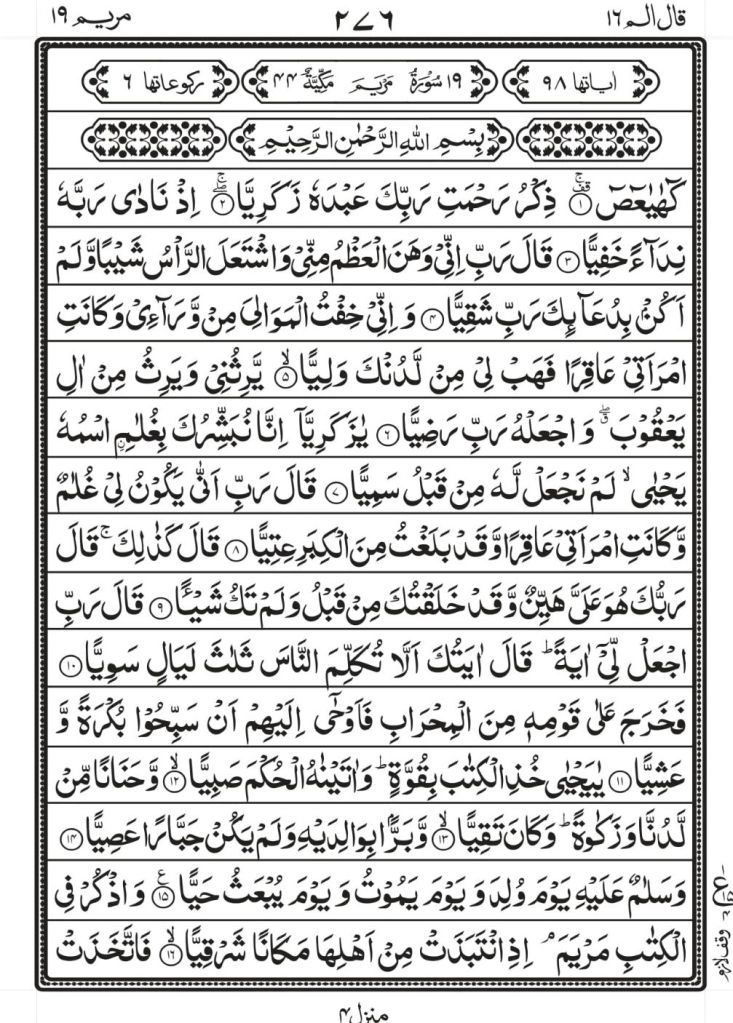 قال الم ١٦
٢٧٦
مريم ١٩
اٰياتها ٩٨
١٩ سُوْرَةُ مَرْيَمَ مَكِّيَّةٌ ٤٤
ركوعاتها ٦
بِسْمِ اللهِ الرَّحْمٰنِ الرَّحِيْمِ
كٓهٰيٰعٓصٓ ۚ‏﴿١﴾ ذِكْرُ رَحْمَتِ رَبِّكَ عَبْدَهٗ زَكَرِيَّا ۖۚ‏﴿٢﴾ اِذْ نَادٰى رَبَّهٗ
نِدَآءً خَفِيًّا ﴿٣﴾ قَالَ رَبِّ اِنِّىْ وَهَنَ الْعَظْمُ مِنِّىْ وَاشْتَعَلَ الرَّاْسُ شَيْبًا وَّلَمْ
اَكُنْۢ بِدُعَآئِكَ رَبِّ شَقِيًّا ﴿٤﴾ وَ اِنِّىْ خِفْتُ الْمَوَالِىَ مِنْ وَّرَآءِىْ وَ كَانَتِ
امْرَاَتِىْ عَاقِرًا فَهَبْ لِىْ مِنْ لَّدُنْكَ وَلِيًّا ۙ‏﴿٥﴾ يَّرِثُنِىْ وَيَرِثُ مِنْ اٰلِ
يَعْقُوْبَ ۖ وَ اجْعَلْهُ رَبِّ رَضِيًّا ﴿٦﴾ يٰزَكَرِيَّاۤ اِنَّا نُبَشِّرُكَ بِغُلٰمِ اۨسْمُهٗ
يَحْيٰى ۙ لَمْ نَجْعَلْ لَّهٗ مِنْ قَبْلُ سَمِيًّا ﴿٧﴾ قَالَ رَبِّ اَنّٰى يَكُوْنُ لِىْ غُلٰمٌ
وَّ كَانَتِ امْرَاَتِىْ عَاقِرًا وَّ قَدْ بَلَغْتُ مِنَ الْكِبَرِ عِتِيًّا ﴿٨﴾ قَالَ كَذٰلِكَ ۚ قَالَ
رَبُّكَ هُوَ عَلَىَّ هَيِّنٌ وَّ قَدْ خَلَقْتُكَ مِنْ قَبْلُ وَلَمْ تَكُ شَيْـًٔا ﴿٩﴾ قَالَ رَبِّ
اجْعَلْ لِّىْۤ اٰيَةً ؕ قَالَ اٰيَتُكَ اَلَّا تُكَلِّمَ النَّاسَ ثَلٰثَ لَيَالٍ سَوِيًّا ﴿١٠﴾
فَخَرَجَ عَلٰى قَوْمِهٖ مِنَ الْمِحْرَابِ فَاَوْحٰۤى اِلَيْهِمْ اَنْ سَبِّحُوْا بُكْرَةً وَّ
عَشِيًّا ﴿١١﴾ يٰيَحْيٰى خُذِ الْكِتٰبَ بِقُوَّةٍ ؕ وَاٰتَيْنٰهُ الْحُكْمَ صَبِيًّا ۙ‏﴿١٢﴾ وَّحَنَانًا مِّنْ
لَّدُنَّا وَزَكٰوةً ؕ وَكَانَ تَقِيًّا ۙ‏﴿١٣﴾ وَّبَرًّۢا بِوَالِدَيْهِ وَلَمْ يَكُنْ جَبَّارًا عَصِيًّا ﴿١٤﴾
وَسَلٰمٌ عَلَيْهِ يَوْمَ وُلِدَ وَ يَوْمَ يَمُوْتُ وَ يَوْمَ يُبْعَثُ حَيًّا ﴿١٥﴾ وَاذْكُرْ فِى
الْكِتٰبِ مَرْيَمَ ۘ اِذِ انْتَبَذَتْ مِنْ اَهْلِهَا مَكَانًا شَرْقِيًّا ۙ‏﴿١٦﴾ فَاتَّخَذَتْ
وقف لازم
منزل ٤